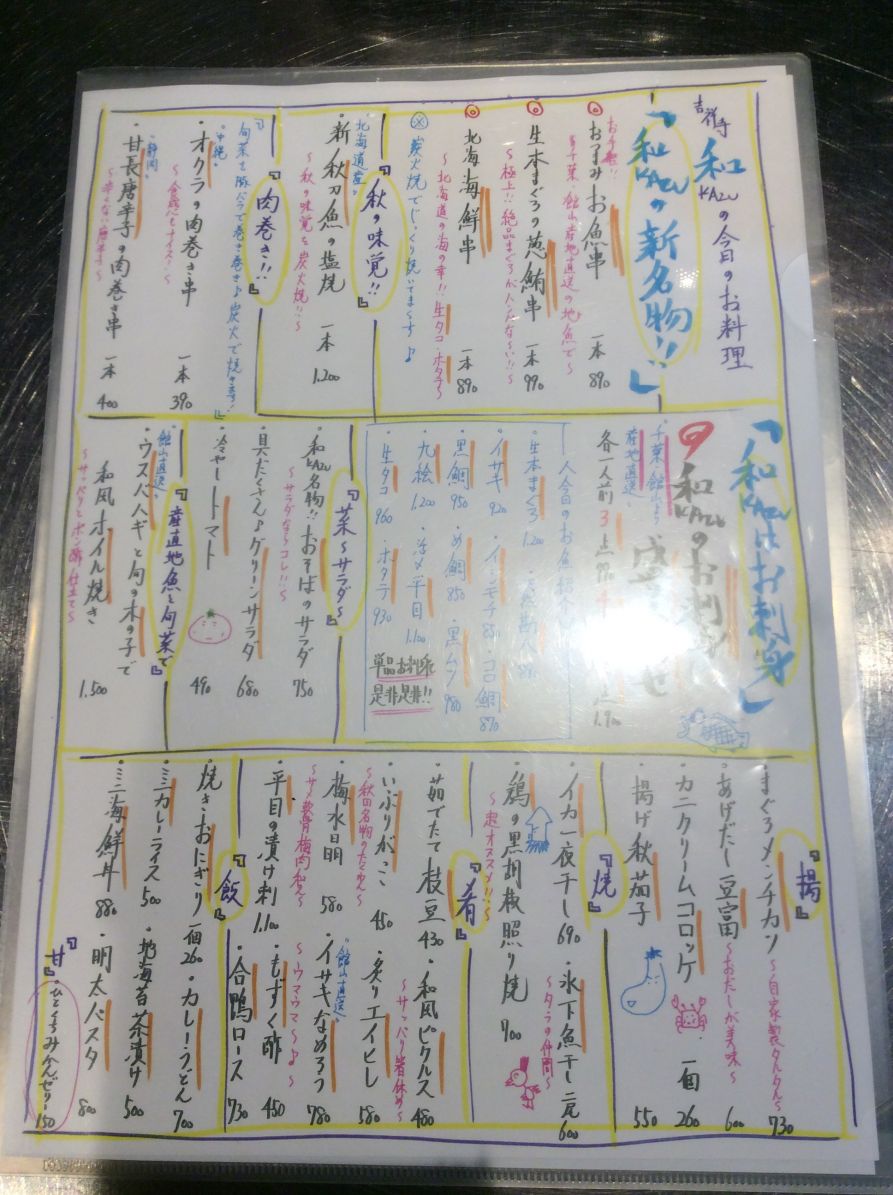 吉祥寺 和 KAZUの今日のお料理
「和KAZUの新名物!!」
お手軽!!
◎おつまみお魚串 一本 890
〜千葉・館山産地直送の地魚で〜
◎生本まぐろの葱鮪串 一本 990
〜極上!!絶品まぐろがハンパな〜い!!〜
◎北海海鮮串 一本 890
〜北海道の海の幸!!生タコ・ホタテ〜
※炭火焼でじっくり焼いてま〜す♪
『秋の味覚!!』
北海道産
・新秋刀魚の塩焼 一本 1.200
〜秋の味覚を炭火焼!!〜
『肉巻き!!』
『旬菜を豚バラで巻き巻き♪炭火で焼きます!』
沖縄
・オクラの肉巻き串 一本 390
〜食感もナイス!〜
静岡
・甘長唐辛子の肉巻き串 一本 400
〜辛くない唐辛子〜
「和KAZUはお刺身」
和KAZUのお刺身
盛
せ
千葉・館山より
産地直送
各一人前 3点 990 4
点 1.900
・生本まぐろ 1.200
・イサキ 920 ・イシモチ 850 ・コロ鯛 870
・黒鯛 950 ・め鯛 850 ・黒ムツ 980
・九絵 1.200 ・活〆平目 1.100
・生タコ 960 ・ホタテ 930
単品お刺身
是非是非!!
『菜〜サラダ〜』
・和KAZU名物!!おそばのサラダ 750
〜サラダならコレ!!〜
・具だくさん♪グリーンサラダ 680
・冷やしトマト 490
『産直地魚と旬菜で』
館山直送
・ウスバハギと旬の木の子で
和風ホイル焼き 1.500
〜サッパリとポン酢仕立て〜
『揚』
・まぐろメンチカツ 〜自家製タルタル〜 730
・あげだし豆富 〜おだしが美味〜 600
・カニクリームコロッケ 一個 260
・揚げ秋茄子 550
『焼』
・イカ一夜干し 690 ・氷下魚干し二尾 600
〜タラの仲間〜
・鶏の黒胡椒照り焼 900
〜超オススメ!!〜
『肴』
・茹でたて枝豆 430 ・和風ピクルス 480
〜サッパリ箸休め〜
・いぶりがっこ 450 ・炙りエイヒレ 580
〜秋田名物のたくあん〜
館山直送
・梅水晶 580 ・イサキなめろう 780
〜サメ軟骨梅肉和え〜 〜ウマウマ〜♪〜
・平目の漬け刺 1.100 ・もずく酢 450
・合鴨ロース 730
『飯』
・焼きおにぎり 一個 260 ・カレーうどん 700
・ミニカレーライス 500 ・地海苔茶漬け 500
・ミニ海鮮丼 880 ・明太パスタ 800
『甘』
・ひとくちみかんぜりー 150